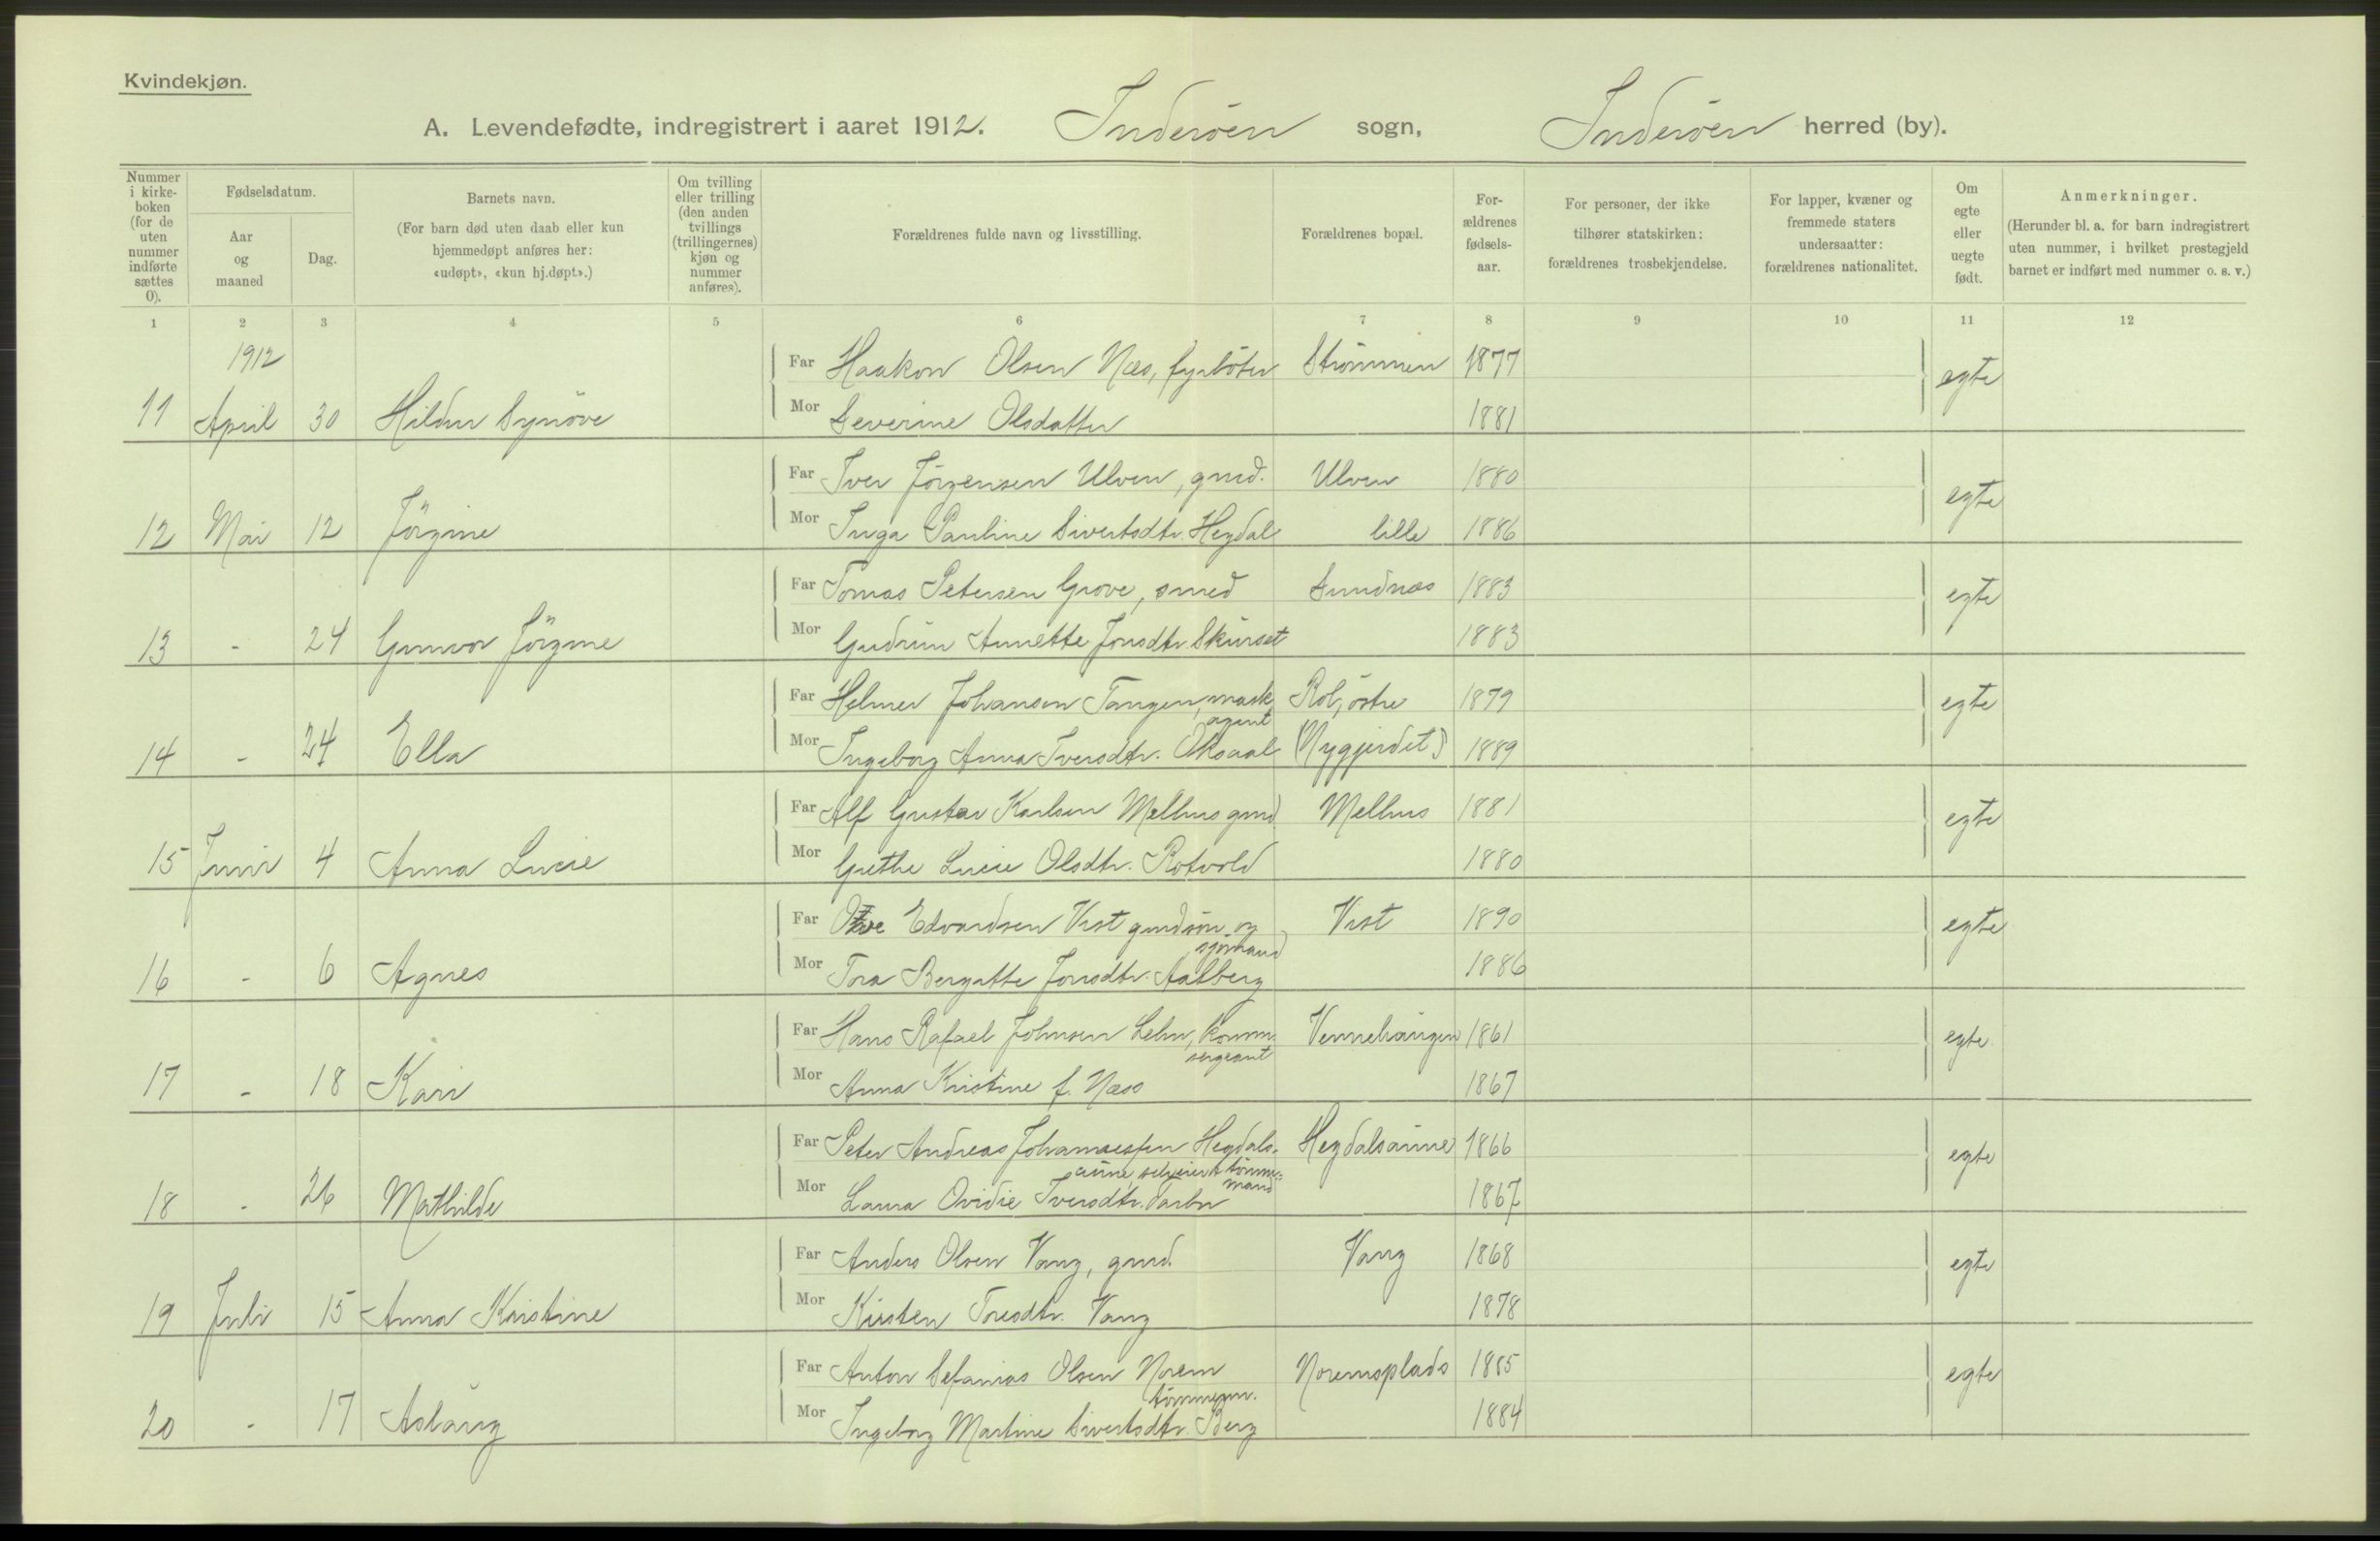 Kvindekjøn.
A. Levendefødte, indregistrert i aaret 1912. Inderöen sogn, Inderöen herred (by).
Nummer i kirke-boken (for de uten nummer indførte sættes 0).
Fødselsdatum.
Aar og maaned
Dag.
Barnets navn.
(For barn død uten daab eller kun hjemmedøpt anføres her: «udøpt», «kun hj.døpt».)
Om tvilling eller trilling (den anden tvillings (trillingernes) kjøn og nummer anføres).
Forældrenes fulde navn og livsstilling.
Forældrenes bopæl.
For-ældrenes fødsels-aar.
For personer, der ikke tilhører statskirken: forældrenes trosbekjendelse.
For lapper, kvæner og fremmede staters undersaatter: forældrenes nationalitet.
Om egte eller uegte født.
Anmerkninger.
(Herunder bl. a. for barn indregistrert uten nummer, i hvilket prestegjeld barnet er indført med nummer o. s. v.)
1 2 3 4 5 6 7 8 9 10 11 12
1912
Far Haakon Olsen Næs, fyrböter Strömmen 1877 egte
11 April 30 Hildur Synöve Mor Severine Olsdatter 1881
Far Iver Jörgensen Ulven, gmd. Ulven 1880 egte
12 Mai 12 Jörgine Mor Inga Pauline Sivertsdtr. Heydal lille 1886
Far Tomas Petersen Grove, smed Sundnæs 1883 egte
13 - 24 Gunvor Jörgine Mor Gudrun Annette Jonsdtr. Skurset 1883
Far Helmer Johansen Tangen, mask. Rol, östre 1879 egte
agent
14 - 24 Ella Mor Ingeborg Anna Iversdtr. Oksaal (Nygjerdet) 1889
Far Alf Gustav Karlsen Melhus gmd. Melhus 1881 egte
15 Juni 4 Anna Lucie Mor Grethe Lucie Olsdtr. Rotvold 1880
Far Ove Edvardsen Vist gmdsön og Vist 1890 egte
sjömand
16 - 6 Agnes Mor Tora Bergitte Jonsdtr. Aalberg 1886
Far Hans Rafael Johnsen Lehn, komm. Vennehaugen 1861 egte
sergeant
17 - 18 Kari Mor Anna Kristine f. Næss 1867
Far Peter Andreas Johannessen Heydals- Heydalsaunet 1866 egte
aune, selveier & tömmer-
mand
18 - 26 Mathilde Mor Laura Ovidie Iversdtr. 1867
Far Anders Olsen Vang, gmd. Vang 1868 egte
19 Juli 15 Anna Kristine Mor Kirsten Toresdtr. Vang 1878
Far Anton Sefanias Olsen Norem Noremsplads 1885 egte
tömmerm.
20 - 17 Aslaug Mor Ingeborg Martine Sivertsdtr. Berg 1884